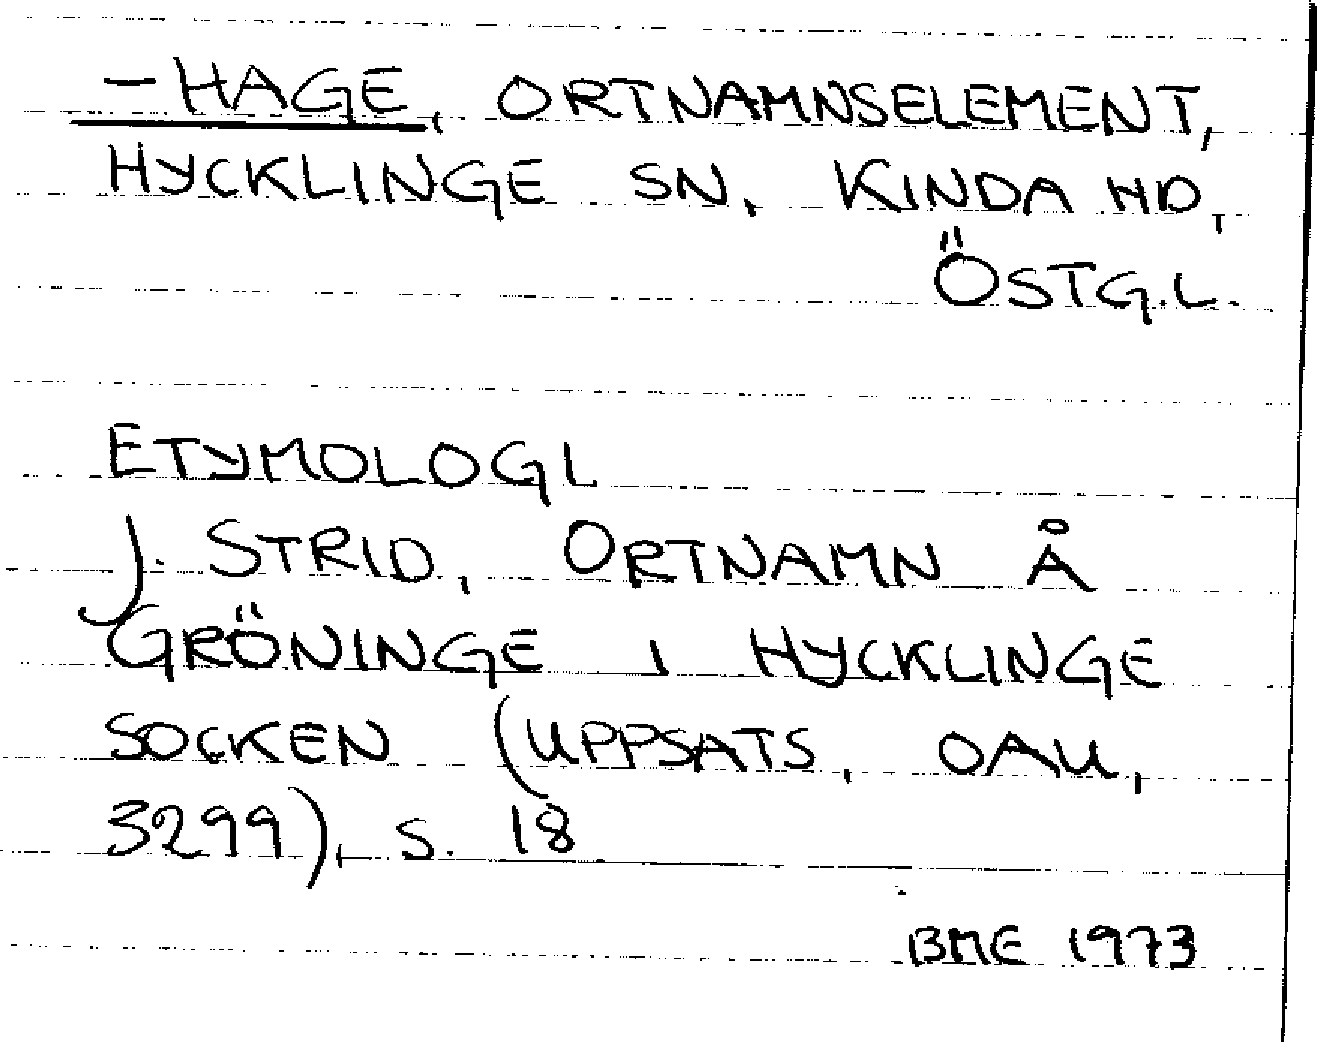 -HAGE, ORTNAMNSELEMENT,
HYCKLINGE SN, KINDA HD,
ÖSTG.L.
ETYMOLOGI
J. STRID, ORTNAMN Å
GRÖNINGE I HYCKLINGE
SOCKEN (UPPSATS, OAU,
3299), S. 18
BME 1973